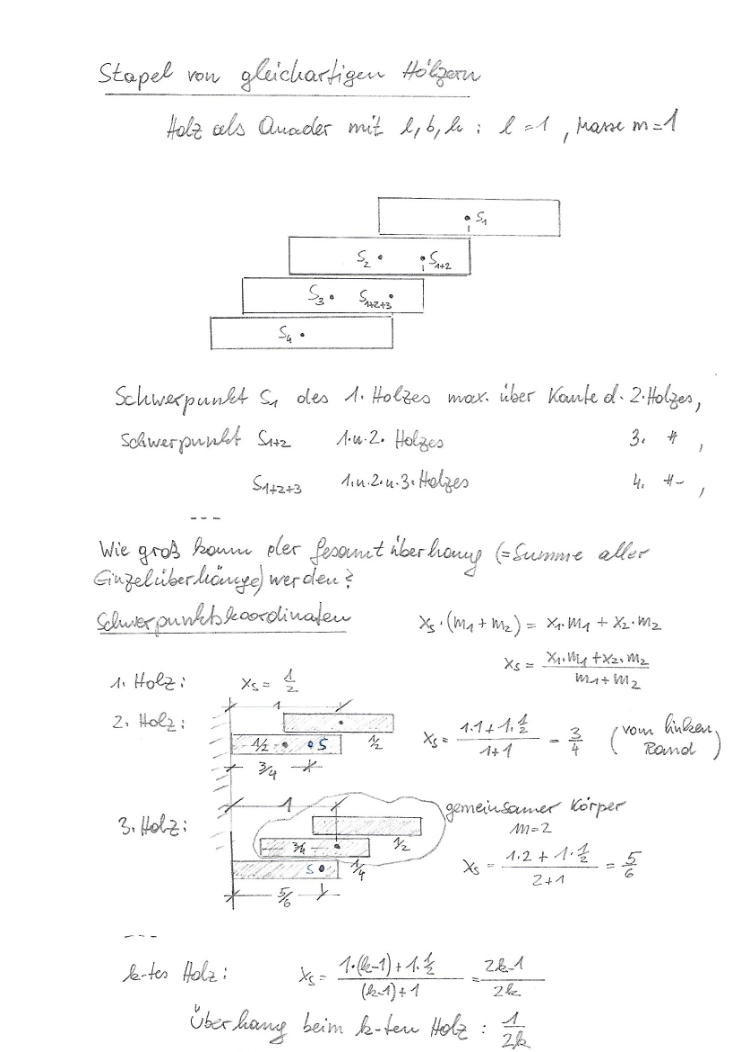 Stapel von gleichartigen Hölzern
Holz als Quader mit l, b, h : l = 1 , Masse m = 1
S₁
S₂ S₁₊₂
S₃ S₁₊₂₊₃
S₄
Schwerpunkt S₁ des 1. Holzes max. über Kante d. 2. Holzes,
Schwerpunkt S₁₊₂ 1. u. 2. Holzes 3. -"- ,
S₁₊₂₊₃ 1. u. 2. u. 3. Holzes 4. -"- ,
---
Wie groß kann der Gesamtüberhang (=Summe aller
Einzelüberhänge) werden?
Schwerpunktskoordinaten
xₛ · (m₁ + m₂) = x₁ · m₁ + x₂ · m₂
xₛ = (x₁ · m₁ + x₂ · m₂) / (m₁ + m₂)
1. Holz: xₛ = 1/2
2. Holz:
1
1/2 S 1/2
3/4
xₛ = (1·1 + 1·1/2) / (1+1) = 3/4 (vom linken
Rand)
3. Holz:
1
gemeinsamer Körper
m=2
3/4 1/2
S 1/4
5/6
xₛ = (1·2 + 1·1/2) / (2+1) = 5/6
---
k-tes Holz: xₛ = (1·(k-1) + 1·1/2) / ((k-1)+1) = (2k-1) / 2k
Überhang beim k-ten Holz : 1/2k